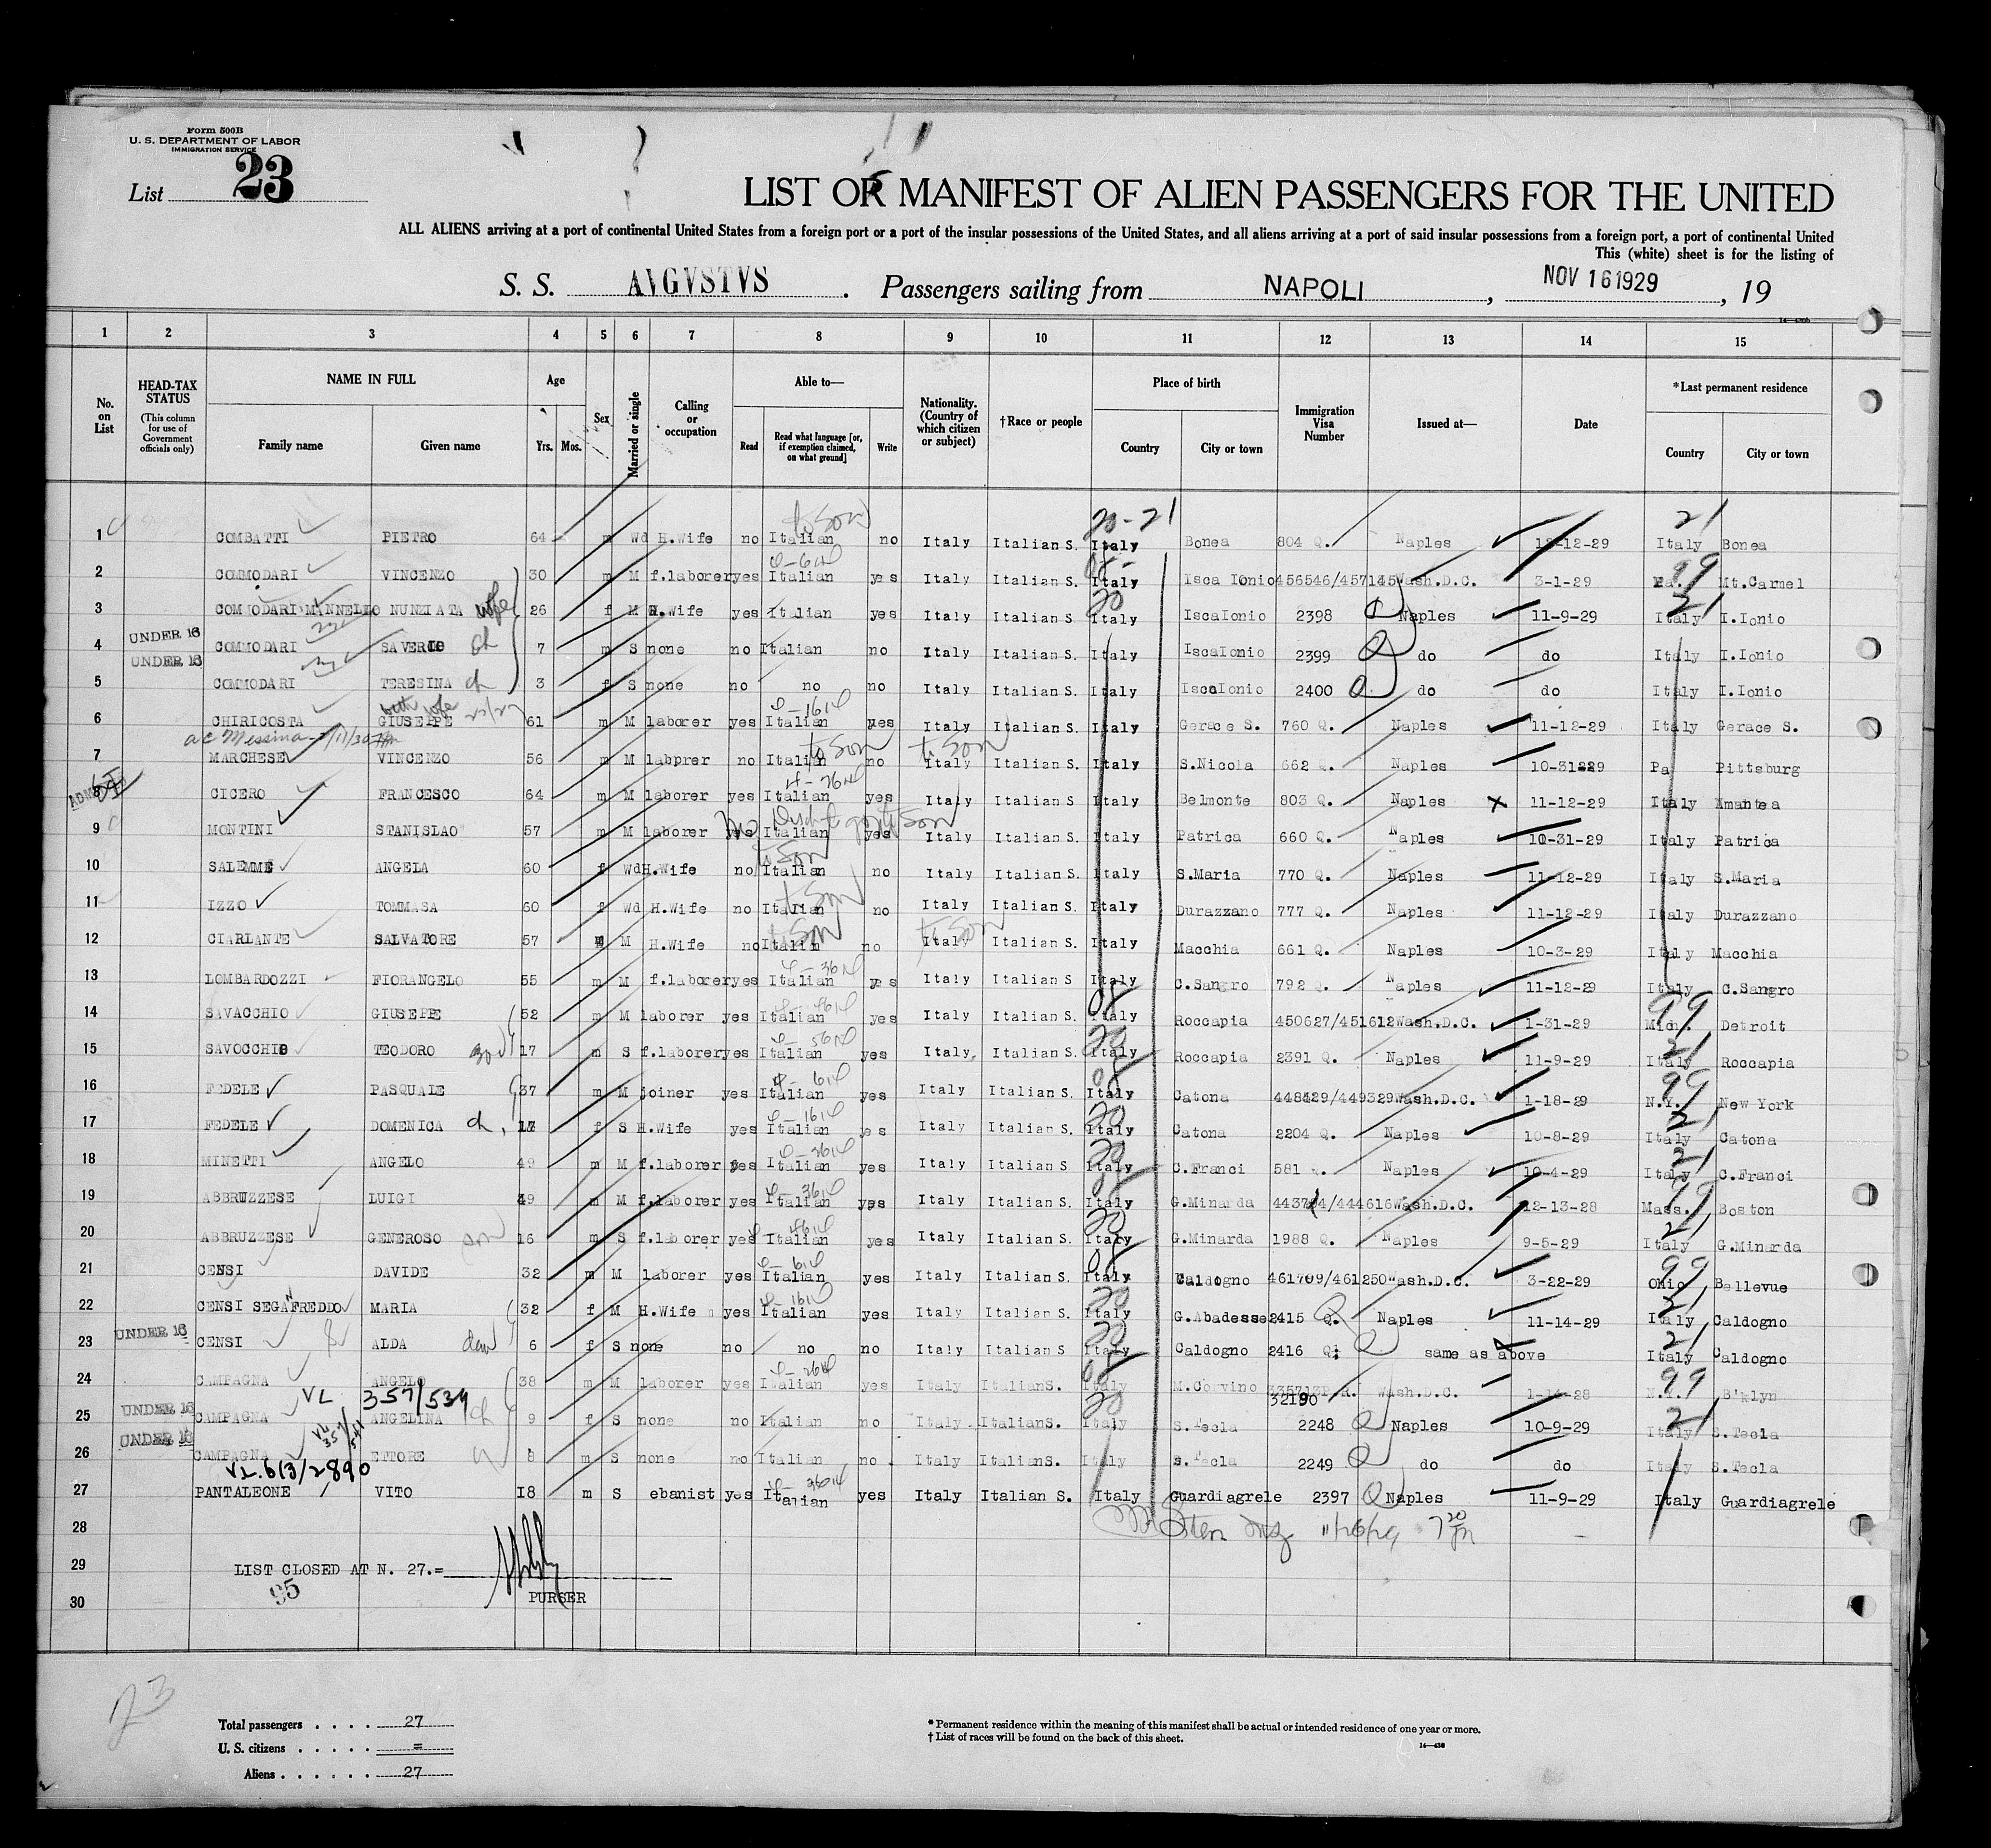 Form 500B
U. S. DEPARTMENT OF LABOR
IMMIGRATION SERVICE
List 23
LIST OR MANIFEST OF ALIEN PASSENGERS FOR THE UNITED
ALL ALIENS arriving at a port of continental United States from a foreign port or a port of the insular possessions of the United States, and all aliens arriving at a port of said insular possessions from a foreign port, a port of continental United
This (white) sheet is for the listing of
S. S. AVGVSTVS . Passengers sailing from NAPOLI , NOV 16 1929 , 19
1 2 3 4 5 6 7 8 9 10 11 12 13 14 15
No. on List
HEAD-TAX STATUS (This column for use of Government officials only)
NAME IN FULL
Family name Given name
Age
Yrs. Mos.
Sex
Married or single
Calling or occupation
Able to—
Read Read what language [or, if exemption claimed, on what ground] Write
Nationality. (Country of which citizen or subject)
†Race or people
Place of birth
Country City or town
Immigration Visa Number
Issued at—
Date
*Last permanent residence
Country City or town
to Son 20-21 21
1 COMBATTI PIETRO 64 m Wd H.Wife no Italian no Italy Italian S. Italy Bonea 804 Q. Naples 12-12-29 Italy Bonea
2 COMMODARI VINCENZO 30 m M f.laborer yes Italian yes Italy Italian S. Italy Isca Ionio 456546/457145 Wash.D.C. 3-1-29 Pa. 99 Mt.Carmel
3 COMMODARI MINNELLO NUNZIATA wife 26 f M H.Wife yes Italian yes Italy Italian S. 20 Italy IscaIonio 2398 Q Naples 11-9-29 Italy 21 I.Ionio
4 UNDER 16 COMMODARI SAVERIO ch 7 m S none no Italian no Italy Italian S. Italy IscaIonio 2399 Q do do Italy I.Ionio
5 UNDER 16 COMMODARI TERESINA ch 3 f S none no no no Italy Italian S. Italy IscaIonio 2400 Q do do Italy I.Ionio
6 CHIRICOSTA GIUSEPPE 61 m M laborer yes Italian yes Italy Italian S. Italy Gerace S. 760 Q. Naples 11-12-29 Italy Gerace S.
7 MARCHESE VINCENZO 56 m M labprer no Italian to Son no Italy Italian S. Italy S.Nicola 662 Q. Naples 10-31-29 Pa Pittsburg
8 CICERO FRANCESCO 64 m M laborer yes Italian yes Italy Italian S Italy Belmonte 803 Q. Naples x 11-12-29 Italy Amantea
9 MONTINI STANISLAO 57 m M laborer yes Italian yes Italy Italian S. Italy Patrica 660 Q. Naples 10-31-29 Italy Patrica
10 SALEMME ANGELA 60 f Wd H.Wife no Italian to Son no Italy Italian S. Italy S.Maria 770 Q. Naples 11-12-29 Italy S.Maria
11 IZZO TOMMASA 60 f Wd H.Wife no Italian to Son no Italy Italian S. Italy Durazzano 777 Q. Naples 11-12-29 Italy Durazzano
12 CIARLANTE SALVATORE 57 M H.Wife no Italin to Son no Italy Italian S. Italy Macchia 661 Q. Naples 10-3-29 Italy Macchia
13 LOMBARDOZZI FIORANGELO 55 m M f.laborer yes Italian yes Italy Italian S. Italy C.Sangro 792 Q. Naples 11-12-29 Italy C.Sangro
14 SAVACCHIO GIUSEPPE 52 m M laborer yes Italian yes Italy Italian S. Italy Roccapia 450627/451612 Wash.D.C. 1-31-29 Mich. 99 Detroit
15 SAVOCCHIO TEODORO 17 m S f.laborer yes Italian yes Italy Italian S. 20 Italy Roccapia 2391 Q. Naples 11-9-29 Italy 21 Roccapia
16 FEDELE PASQUALE 37 m M joiner yes Italian yes Italy Italian S. Italy Catona 448429/449329 Wash.D.C. 1-18-29 N.Y. 99 New York
17 FEDELE DOMENICA ch 17 f S H.Wife yes Italian yes Italy Italian S. 20 Italy Catona 2204 Q. Naples 10-8-29 Italy 21 Catona
18 MINETTI ANGELO 49 m M f.laborer yes Italian yes Italy Italian S 20 Italy C.Franci 581 Naples 10-4-29 Italy 21 C.Franci
19 ABBRUZZESE LUIGI 49 m M f.laborer yes Italian yes Italy Italian S. Italy G.Minarda /444616 Wash.D.C. 12-13-28 Mass. 99 Boston
20 ABBRUZZESE GENEROSO son 16 m S f.laborer yes Italian yes Italy Italian S. 20 Italy G.Minarda 1988 Q. Naples 9-5-29 Italy 21 G.Minarda
21 CENSI DAVIDE 32 m M laborer yes Italian yes Italy Italian S. Italy Caldogno 461709/461250 Wash.D.C. 3-22-29 Ohio 99 Bellevue
22 CENSI SEGAFREDDO MARIA 32 f M H.Wife yes Italian yes Italy Italian S. 20 Italy G.Abadesse 2415 Q. Naples 11-14-29 Italy 21 Caldogno
23 UNDER 16 CENSI ALDA dau 6 f S none no no no Italy Italian S 20 Italy Caldogno 2416 Q. same as above Italy 21 Caldogno
24 CAMPAGNA ANGELO 38 m M laborer yes Italian yes Italy ItalianS. Italy M.Corvino 32190 Wash.D.C. N.Y. 99 B'klyn
VL 357/534
25 UNDER 16 CAMPAGNA ANGELINA ch 9 f S none no Italian no Italy ItalianS. 20 Italy S.Tecla 2248 Q Naples 10-9-29 Italy 21 S.Tecla
26 UNDER 16 CAMPAGNA ETTORE 8 m S none no Italian no Italy ItalianS. Italy S.Tecla 2249 Q do do Italy S.Tecla
VL.613/2890
27 PANTALEONE VITO 18 m S ebanist yes Italian yes Italy Italian S. Italy Guardiagrele 2397 Q Naples 11-9-29 Italy Guardiagrele
28
29 LIST CLOSED AT N. 27.=
95
30 PURSER
23
Total passengers . . . . 27
U. S. citizens . . . . . =
Aliens . . . . . . 27
* Permanent residence within the meaning of this manifest shall be actual or intended residence of one year or more.
† List of races will be found on the back of this sheet.
14—430